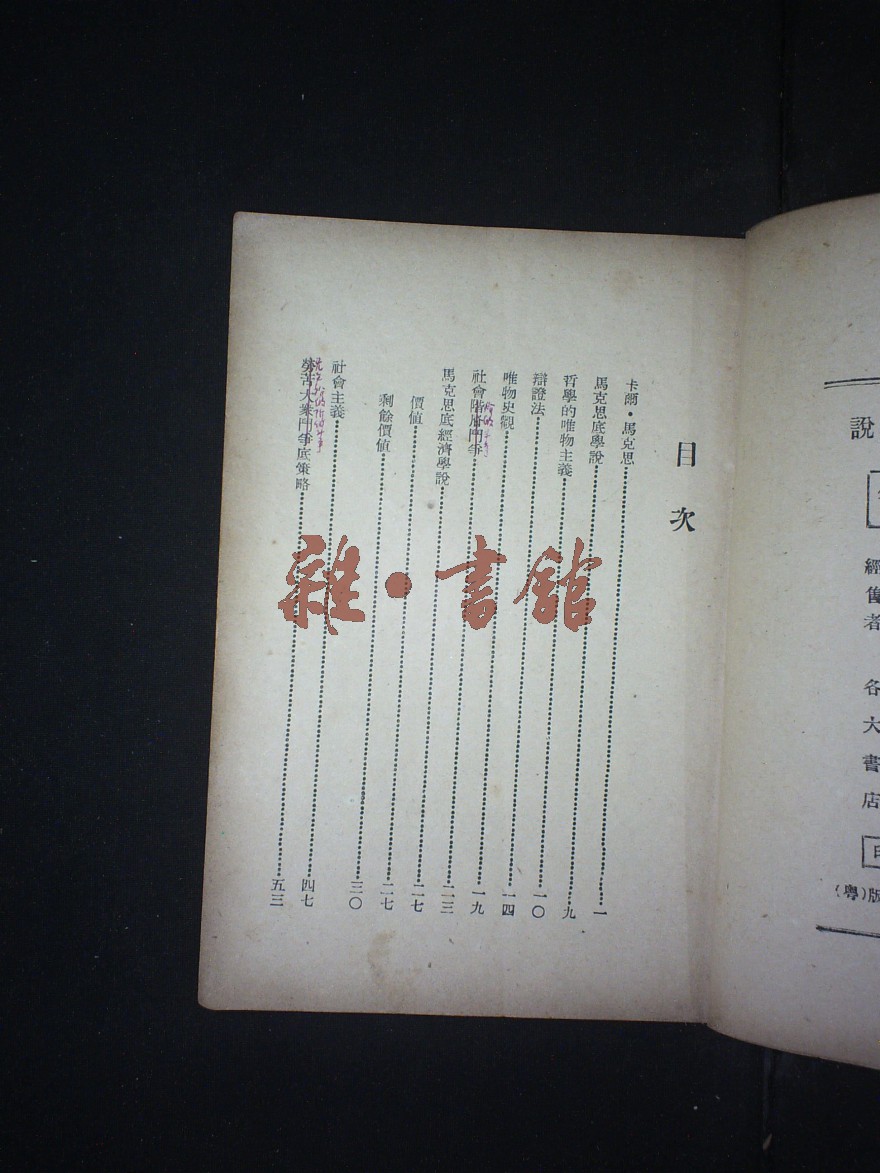 說
經售者 各大書店
版(粵)
目次
卡爾・馬克思……一
馬克思底學說……九
哲學的唯物主義……一〇
辯證法……一四
唯物史觀……一九
社會階層鬥爭……二三
馬克思底經濟學說……二七
價值……二七
剩餘價值……三〇
社會主義……四七
勞苦大衆鬥爭底策略……五三
雜・書館